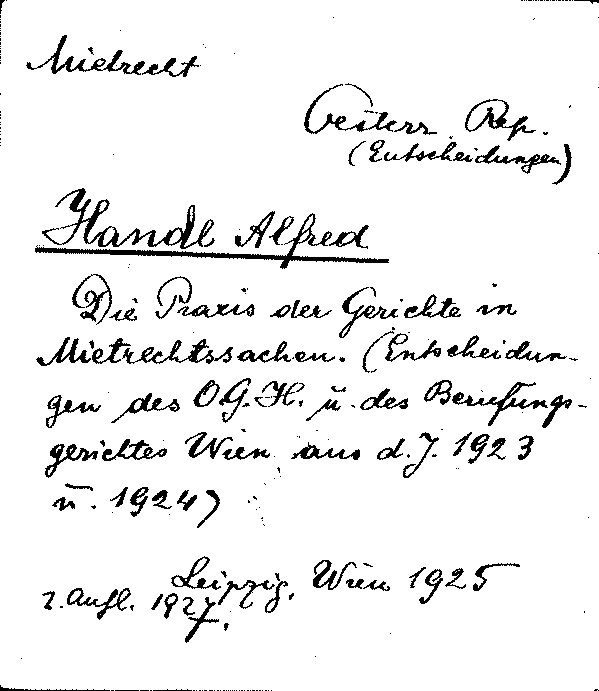 Mietrecht
Oesterr. Rep.
(Entscheidungen)
Handl Alfred
Die Praxis der Gerichte in
Mietrechtssachen. (Entscheidun-
gen des O.G.H. u. des Berufungs-
gerichtes Wien aus d. J. 1923
u. 1924)
Leipzig, Wien 1925
2. Aufl. 1927.